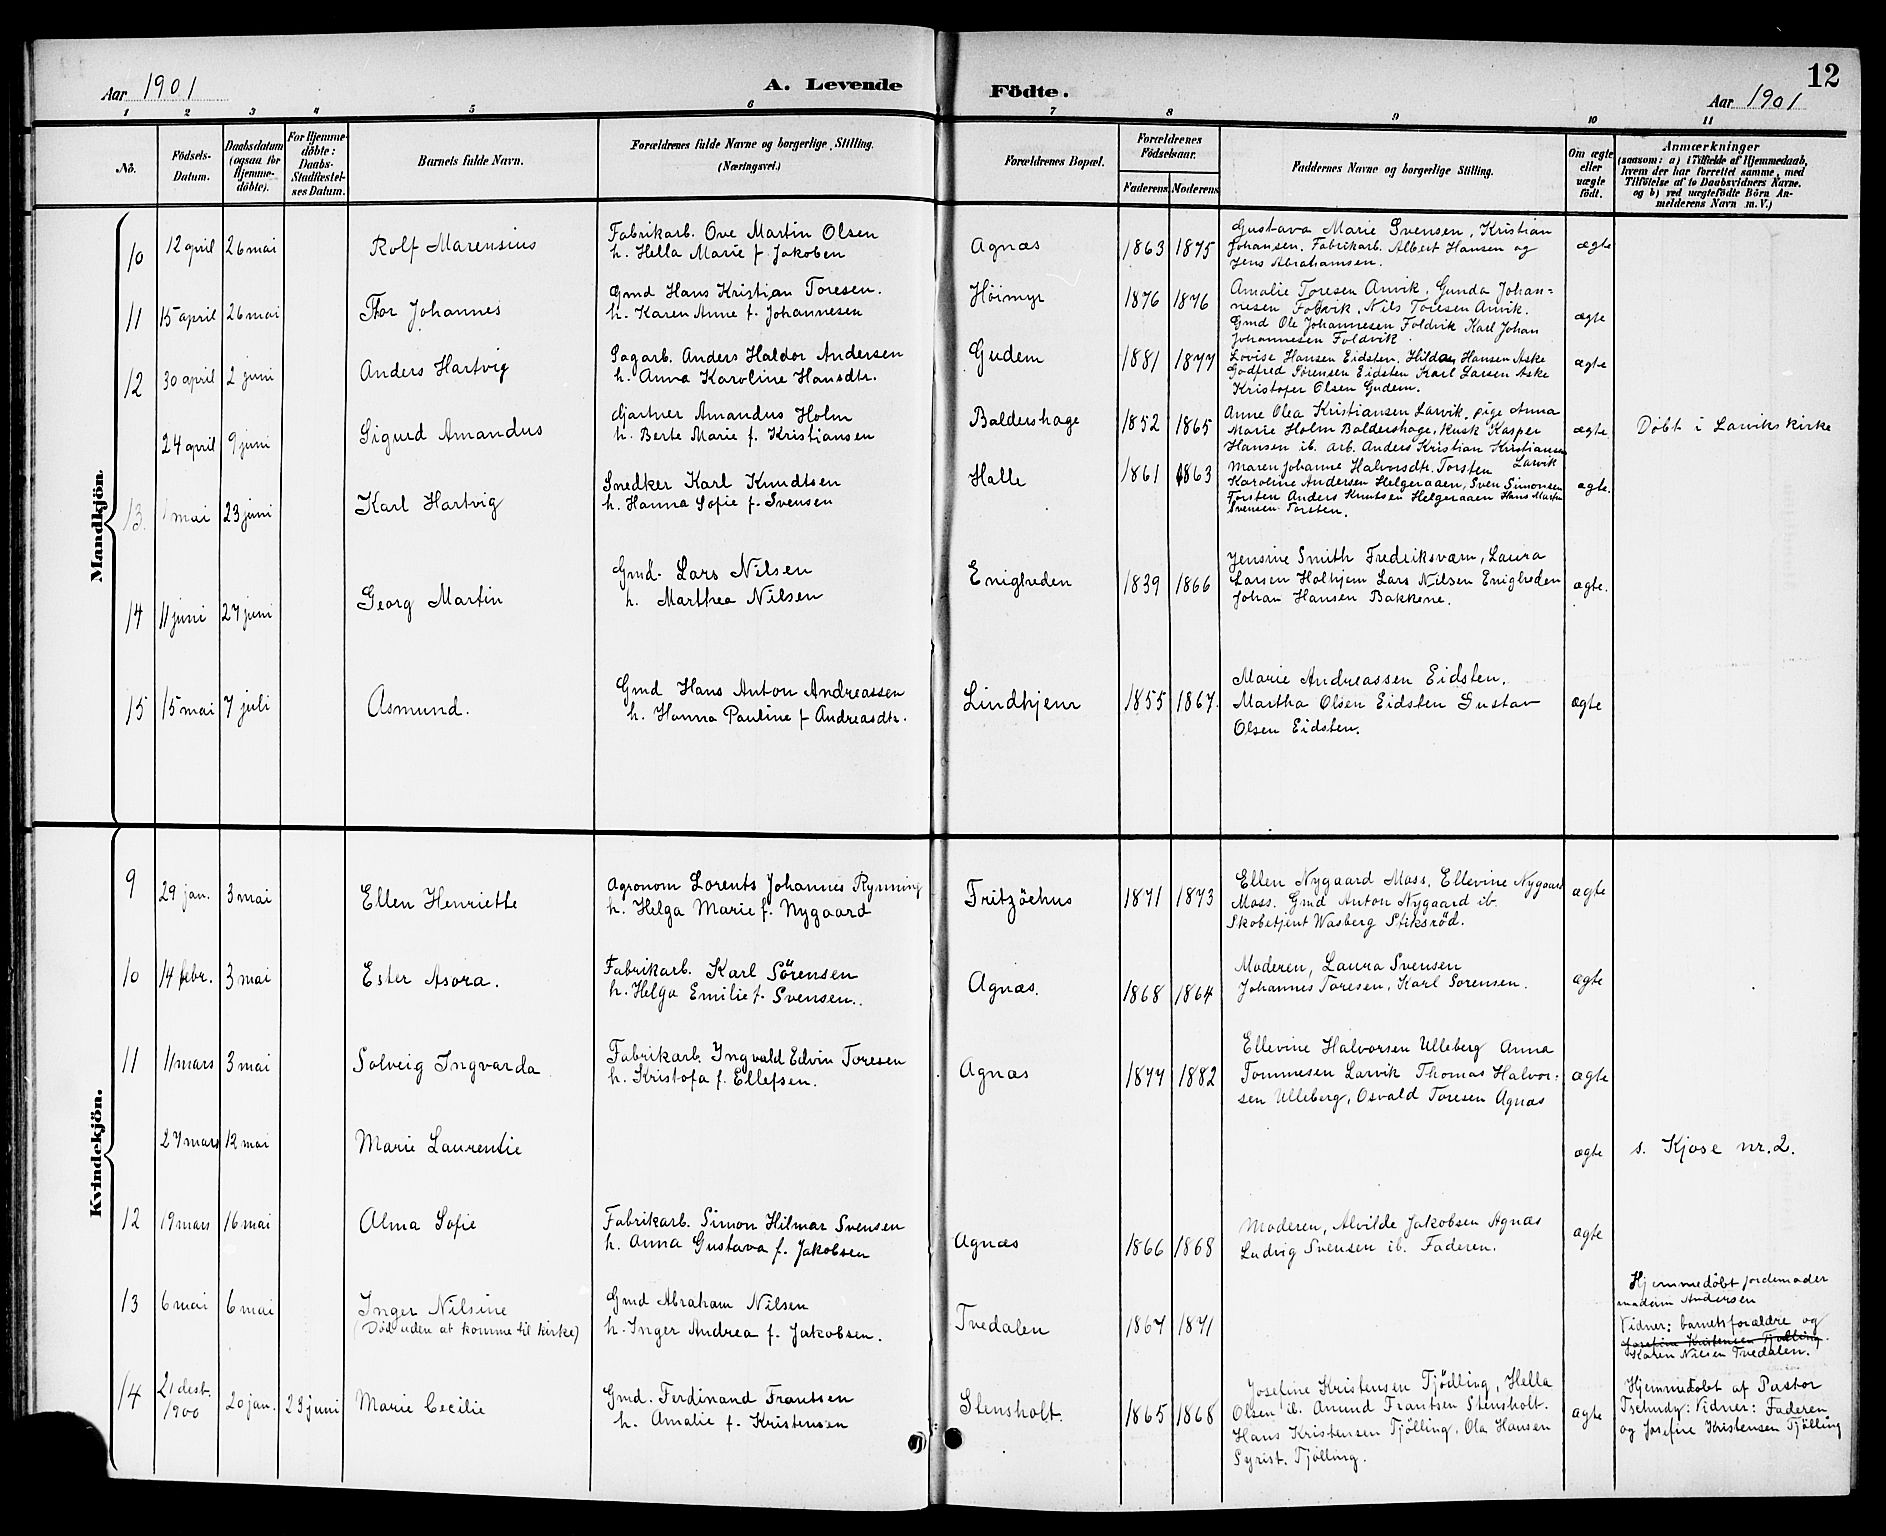 Aar 1901
A. Levende Födte.
12
Aar 1901
1 2 3 4 5 6 7 8 9 10 11
No.
Födsels-Datum.
Daabsdatum (ogsaa for Hjemme-döbte).
For Hjemme-döbte: Daabs-Stadfæstel-ses Datum.
Barnets fulde Navn.
Forældrenes fulde Navne og borgerlige Stilling. (Næringsvei.)
Forældrenes Bopæl.
Forældrenes Födselsaar.
Faderens Moderens
Faddernes Navne og borgerlige Stilling.
Om ægte eller uægte födt.
Anmærkninger
(saasom: a) i Tilfælde af Hjemmedaab, hvem der har forrettet samme, med Tilföielse af to Daabsvidners Navne, og b) ved uægtefödte Börn An-melderens Navn m. V.)
Mandkjön.
10 12 april 26 mai Rolf Marensius
Fabrikarb. Ove Martin Olsen
h. Hella Marie f. Jakobsen
Agnæs 1863 1875
Gustava Marie Svensen, Kristian
Johansen, Fabrikarb. Albert Hansen og
Jens Abrahamsen.
ægte
11 15 april 26 mai Thor Johannes
Gmd Hans Kristian Toresen.
h. Karen Anne f. Johannesen
Höimyr 1876 1876
Amalie Toresen Anvik, Gunda Johan=
nesen Foldvik, Nils Toresen Anvik.
Gmd Ole Johannesen Foldvik Karl Johan
Johannesen Foldvik.
ægte
12 30 april 2 juni Anders Hartvig
Sagarb. Anders Haldor Andersen
h. Anna Karoline Hansdtr.
Gudem 1881 1877
Lovise Hansen Eidsten, Hilda Hansen Aske
Godfred Sørensen Eidsten Karl Larsen Aske
Kristofer Olsen Gudem.
ægte
24 april 9 juni Sigurd Amandus
Gjartner Amandus Holm
h. Berte Marie f. Kristiansen
Baldershage 1852 1865
Anne Olea Kristiansen Larvik, pige Anna
Marie Holm Baldershage, Kusk Kasper
Hansen ib. arb. Anders Kristian Kristiansen
Larvik
ægte
Døbt i Larviks kirke
13. 1 mai 23 juni Karl Hartvig
Snedker Karl Knudtsen
h. Hanna Sofie f. Svensen
Halle 1861 1863
Maren Johanne Halvorsdtr. Torsten
Karoline Andersen Helgeraaen, Sven Simonsen
Torsten Anders Knutsen Helgeraaen Hans Martin
Svensen Torsten.
ægte.
14 11 juni 27 juni Georg Martin
Gmd. Lars Nilsen
h. Marthea Nilsen
Enigheden 1839 1866
Jensine Smith Fredriksværn, Laura
Larsen Holhjem Lars Nilsen Enigheden
Johan Hansen Bakkene.
ægte.
15 15 mai 7 juli Asmund.
Gmd Hans Anton Andreassen
h. Hanna Pauline f. Andreasdtr.
Lindhjem 1855 1867.
Marie Andreassen Eidsten,
Martha Olsen Eidsten Gustav
Olsen Eidsten.
ægte
Kvindekjön.
9 29 jan. 3 mai Ellen Henriette
Agronom Lorents Johannes Rynning
h. Helga Marie f. Nygaard
Fritzöehus 1871 1873
Ellen Nygaard Moss, Ellevine Nygaard
Moss. Gmd Anton Nygaard ib.
Skobetjent Wasberg Stiksrød.
ægte
10 14 febr. 3 mai Ester Asora.
Fabrikarb. Karl Sörensen
h. Helga Emilie f. Svensen.
Agnæs. 1868 1864
Moderen, Laura Svensen
Johannes Toresen, Karl Sorensen.
ægte
11 11 mars 3 mai Solveig Ingvarda
Fabrikarb. Yngvald Edvin Toresen
h. Kristofa f. Ellefsen.
Agnæs 1877 1882
Ellevine Halvorsen Ulleberg Anna
Tommesen Larvik Thomas Halvor=
sen Ulleberg, Osvald Toresen Agnæs
ægte
27 mars 12 mai Marie Laurentie
ægte
s. Kjose nr. 2.
12 19 mars 16 mai Alma Sofie
Fabrikarb. Simon Hilmar Svensen
h. Anna Gustava f. Jakobsen
Agnæs 1866 1868
Moderen, Alvilde Jakobsen Agnæs
Ludvig Svensen ib. Faderen.
ægte
13 6 mai 6 mai Inger Nilsine
(Död uden at komme til kirke)
Gmd Abraham Nilsen
h. Inger Andrea f. Jakobsen.
Tvedalen 1867 1871
Hjemmedøbt jordemoder
madam Andersen
Vidner: barnets forældre og
Josefine Kristensen Tjølling.
Karen Nilsen Tvedalen.
14 21 dest. 1900 20 jan. 23 juni Marie Cecilie
Gmd. Ferdinand Frantsen
h. Amalie f. Kristensen
Stensholt. 1865 1868
Josefine Kristensen Tjödling, Hella
Olsen ib. Anund Frantsen Stensholt.
Hans Kristensen Tjölling, Ola Hansen
Syrist. Tjölling.
ægte
Hjemmedøbt af Pastor
Tschudy: Vidner: Faderen
og Josefine Kristensen Tjölling